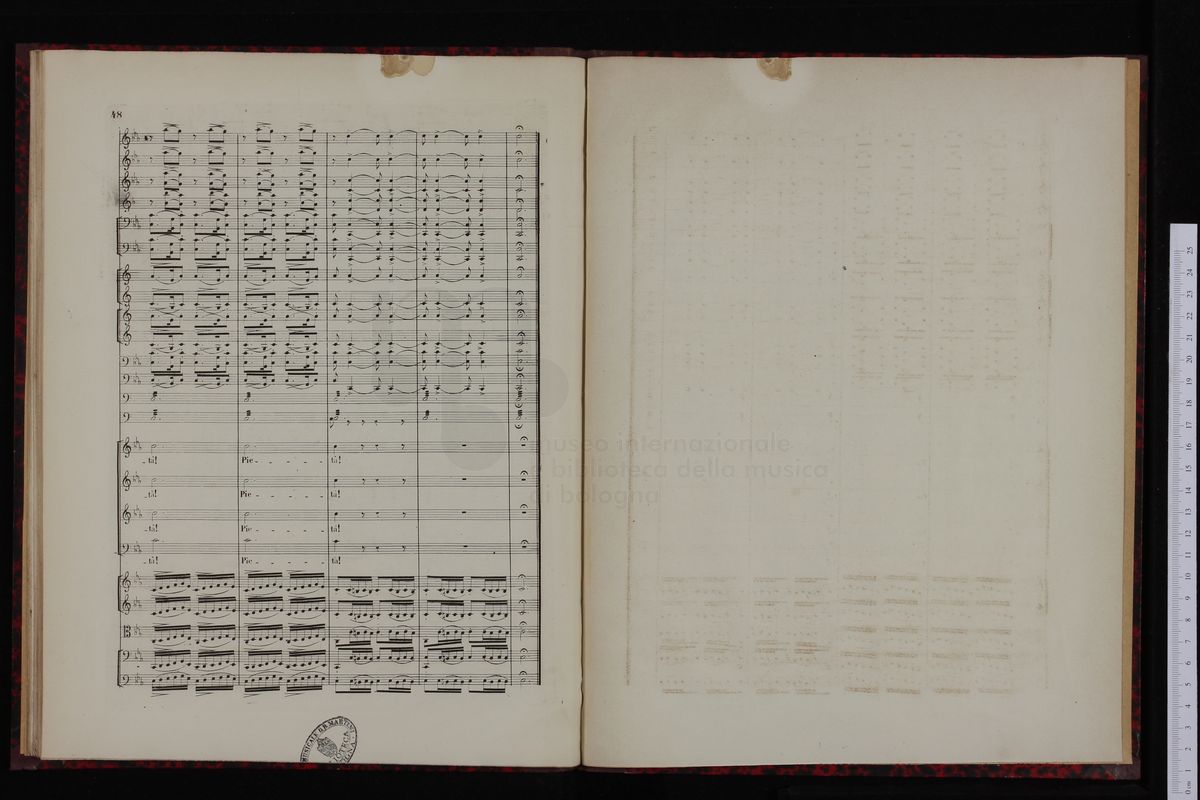 48
-tà! Pie- - - - - tà!
-tà! Pie- - - - - tà!
-tà! Pie- - - - - tà!
-tà! Pie- - - - - tà!
museo internazionale
e biblioteca della musica
di bologna
MUSICALE G.B. MARTINI
0 cm 1 2 3 4 5 6 7 8 9 10 11 12 13 14 15 16 17 18 19 20 21 22 23 24 25